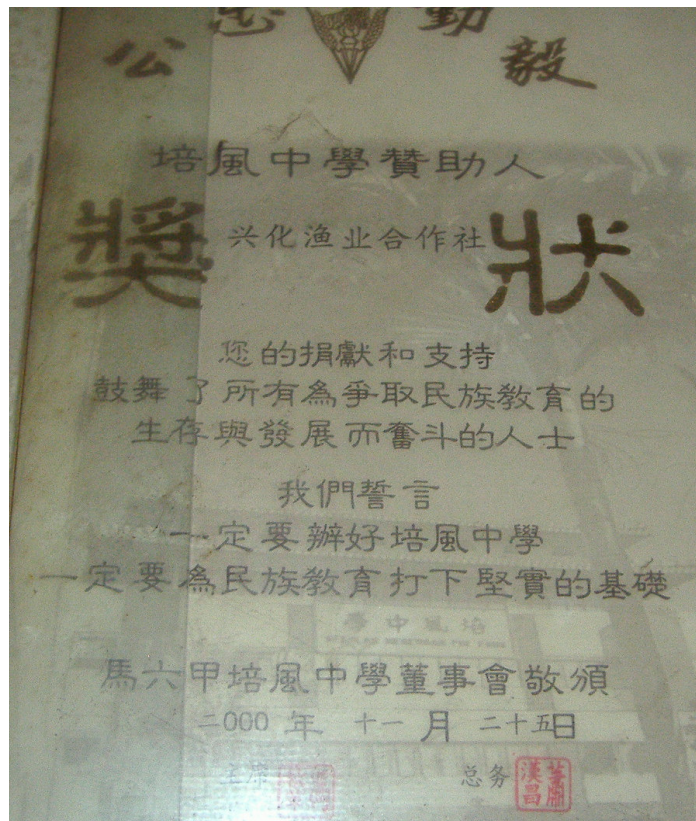 公忠勤毅
培風中學贊助人
獎狀
兴化渔业合作社
您的捐獻和支持
鼓舞了所有為爭取民族教育的
生存與發展而奮斗的人士
我們誓言
一定要辦好培風中學
一定要為民族教育打下堅實的基礎
學中風培
馬六甲培風中學董事會敬頒
二000年 十一月 二十五日
主席 总务
漢昌